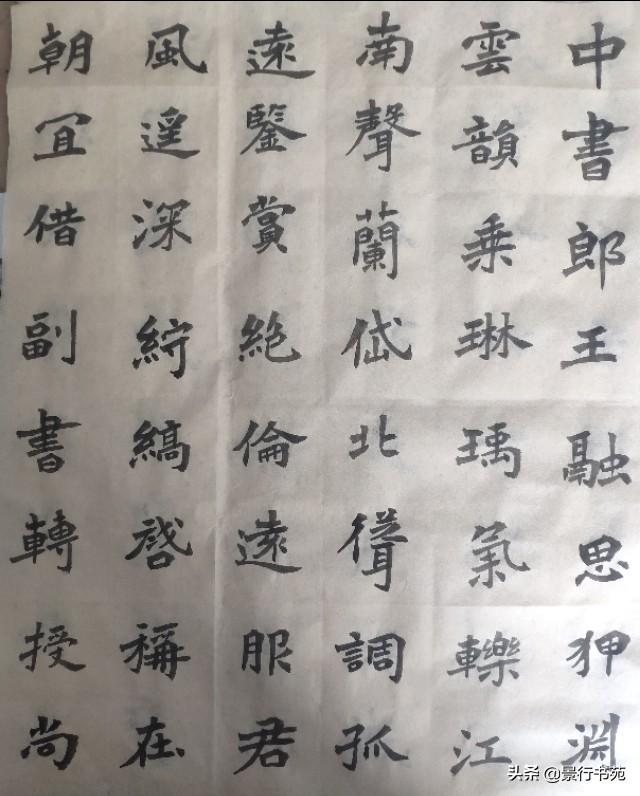 中書郎王融思狎淵
雲韻乗琳瑀氣轢江
南聲蘭岱北聳調孤
遠鑒賞絶倫遠服君
風遥深紵縞啓稱在
朝冝借副書轉授尚
头条 @景行书苑